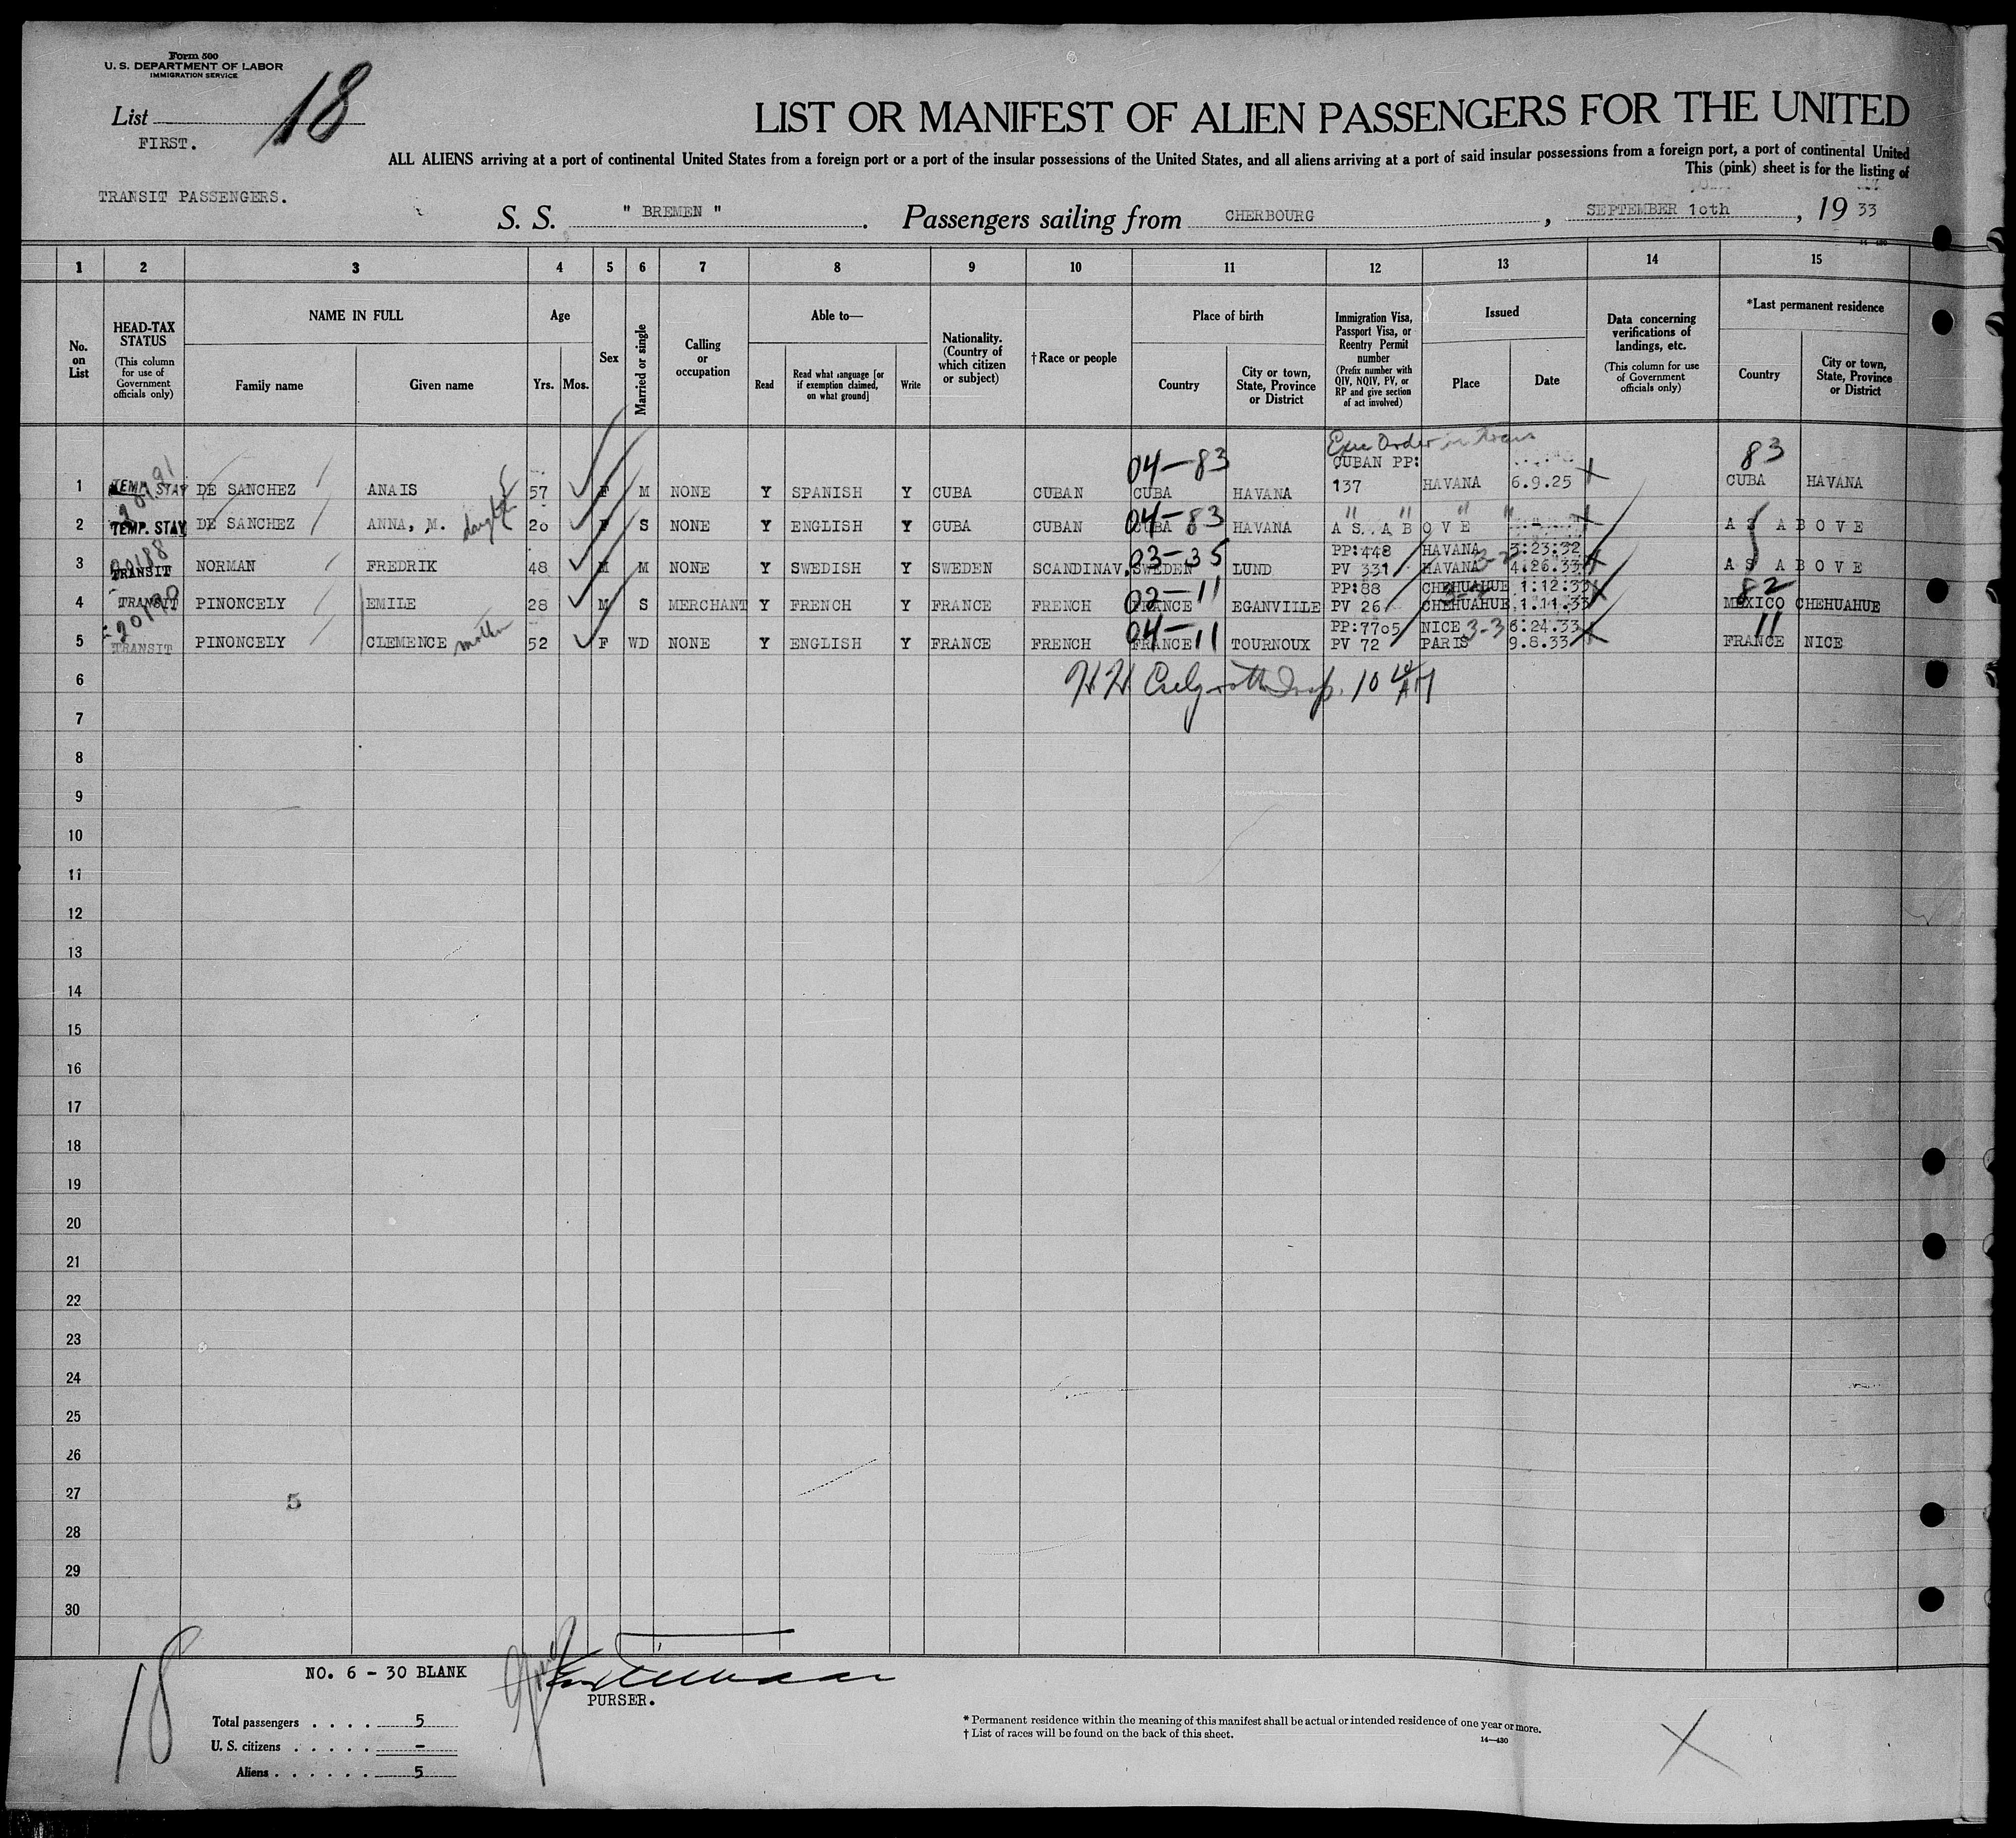 Form 500
U. S. DEPARTMENT OF LABOR
IMMIGRATION SERVICE
List 18
FIRST.
TRANSIT PASSENGERS.
LIST OR MANIFEST OF ALIEN PASSENGERS FOR THE UNITED
ALL ALIENS arriving at a port of continental United States from a foreign port or a port of the insular possessions of the United States, and all aliens arriving at a port of said insular possessions from a foreign port, a port of continental United
This (pink) sheet is for the listing of
S. S. " BREMEN ". Passengers sailing from CHERBOURG, SEPTEMBER 1oth, 19 33
1 2 3 4 5 6 7 8 9 10 11 12 13 14 15
No. on List
HEAD-TAX STATUS (This column for use of Government officials only)
NAME IN FULL
Family name
Given name
Age
Yrs. Mos.
Sex
Married or single
Calling or occupation
Able to—
Read
Read what language [or if exemption claimed, on what ground]
Write
Nationality. (Country of which citizen or subject)
†Race or people
Place of birth
Country
City or town, State, Province or District
Immigration Visa, Passport Visa, or Reentry Permit number (Prefix number with QIV, NQIV, PV, or RP and give section of act involved)
Issued
Place
Date
Data concerning verifications of landings, etc. (This column for use of Government officials only)
*Last permanent residence
Country
City or town, State, Province or District
Exec Order in trans
04-83 CUBAN PP: 83
1 TEMP. STAY DE SANCHEZ ANAIS 57 F M NONE Y SPANISH Y CUBA CUBAN CUBA HAVANA 137 HAVANA 6.9.25 CUBA HAVANA
20191
2 TEMP. STAY DE SANCHEZ ANNA, M. daughter 2o F S NONE Y ENGLISH Y CUBA CUBAN CUBA 04-83 HAVANA AS ABOVE AS ABOVE
20188 03-35 PP:448 HAVANA 3:23:32
3 TRANSIT NORMAN FREDRIK 48 M M NONE Y SWEDISH Y SWEDEN SCANDINAV. SWEDEN LUND PV 331 HAVANA 4.26.33 AS ABOVE
02-11 PP:88 CHEHUAHUE 1:12:33 82
4 TRANSIT PINONCELY EMILE 28 M S MERCHANT Y FRENCH Y FRANCE FRENCH FRANCE EGANVILLE PV 26 CHEHUAHUE 1.11.33 MEXICO CHEHUAHUE
20190 04-11 PP:77o5 NICE 3-3 6:24.33 11
5 TRANSIT PINONCELY CLEMENCE mother 52 F WD NONE Y ENGLISH Y FRANCE FRENCH FRANCE TOURNOUX PV 72 PARIS 9.8.33 FRANCE NICE
6 Insp. 10 AM
7
8
9
10
11
12
13
14
15
16
17
18
19
20
21
22
23
24
25
26
27
5
28
29
30
18
NO. 6 - 30 BLANK
PURSER.
Total passengers . . . . 5
U. S. citizens . . . . . -
Aliens . . . . . . 5
* Permanent residence within the meaning of this manifest shall be actual or intended residence of one year or more.
† List of races will be found on the back of this sheet.
14—430